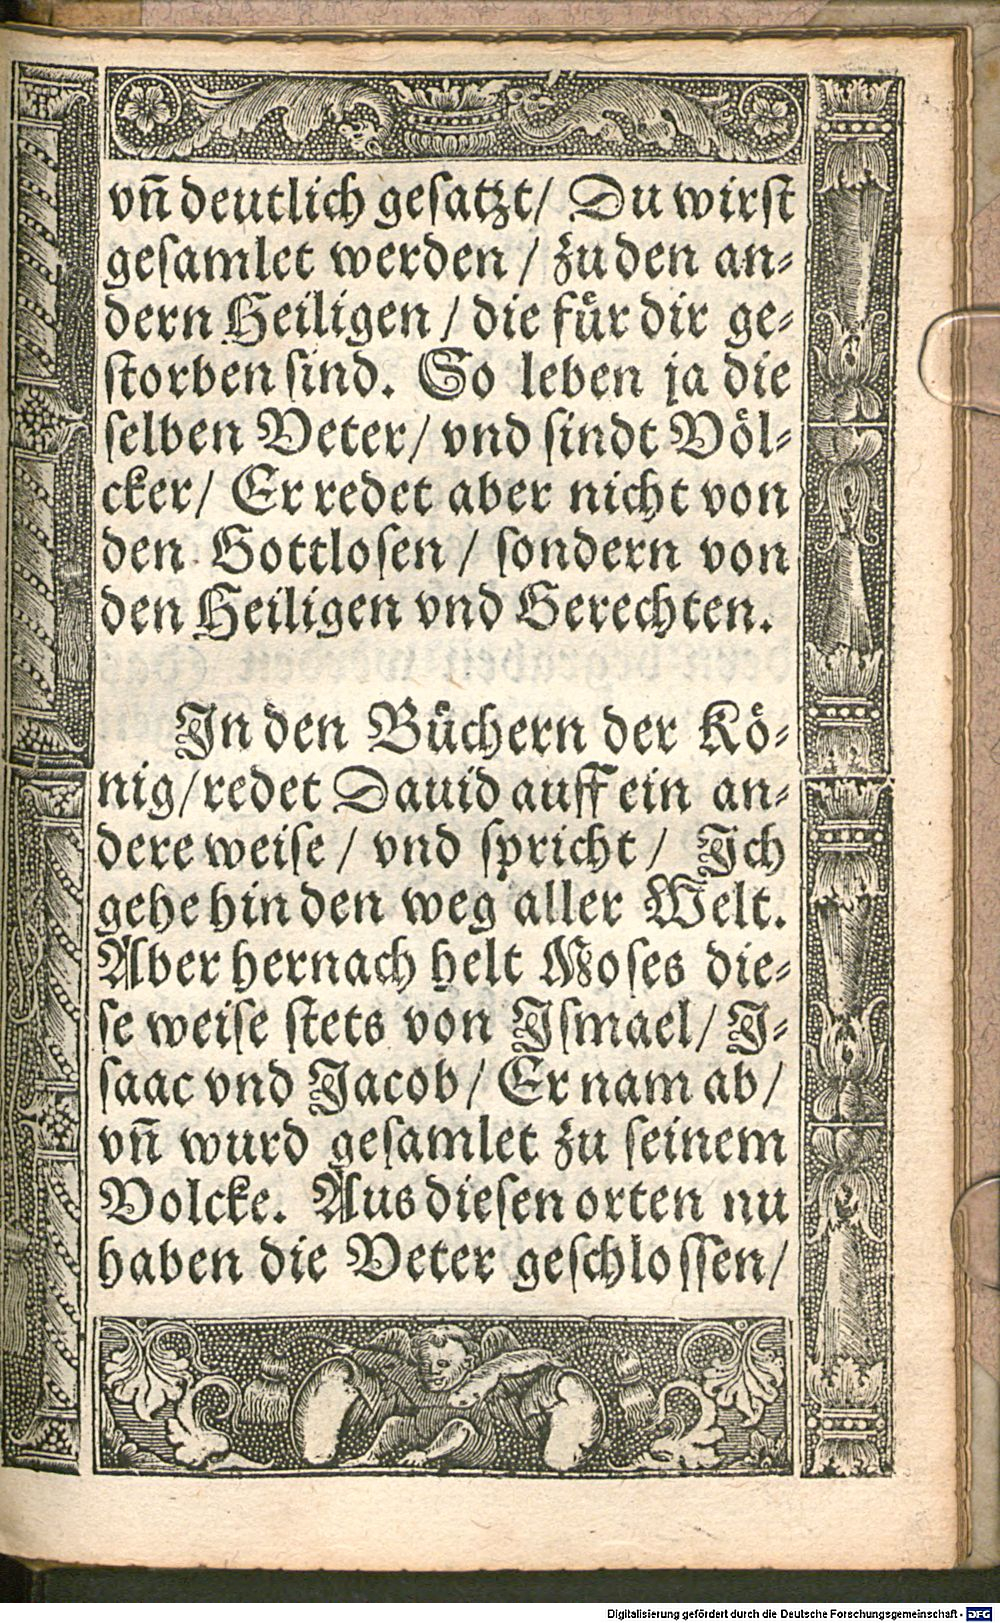 vñ deutlich gesatzt/ Du wirst
gesamlet werden / zu den an⸗
dern Heiligen / die fuͤr dir ge⸗
storben sind. So leben ja die
selben Veter/ vnd sindt Voͤl⸗
cker/ Er redet aber nicht von
den Gottlosen / sondern von
den Heiligen vnd Gerechten.
In den Buͤchern der Koͤ⸗
nig/ redet Dauid auff ein an⸗
dere weise / vnd spricht / Ich
gehe hin den weg aller Welt.
Aber hernach helt Moses die⸗
se weise stets von Ismael/ I⸗
saac vnd Jacob/ Er nam ab/
vñ wurd gesamlet zu seinem
Volcke. Aus diesen orten nu
haben die Veter geschlossen/
Digitalisierung gefördert durch die Deutsche Forschungsgemeinschaft - DFG